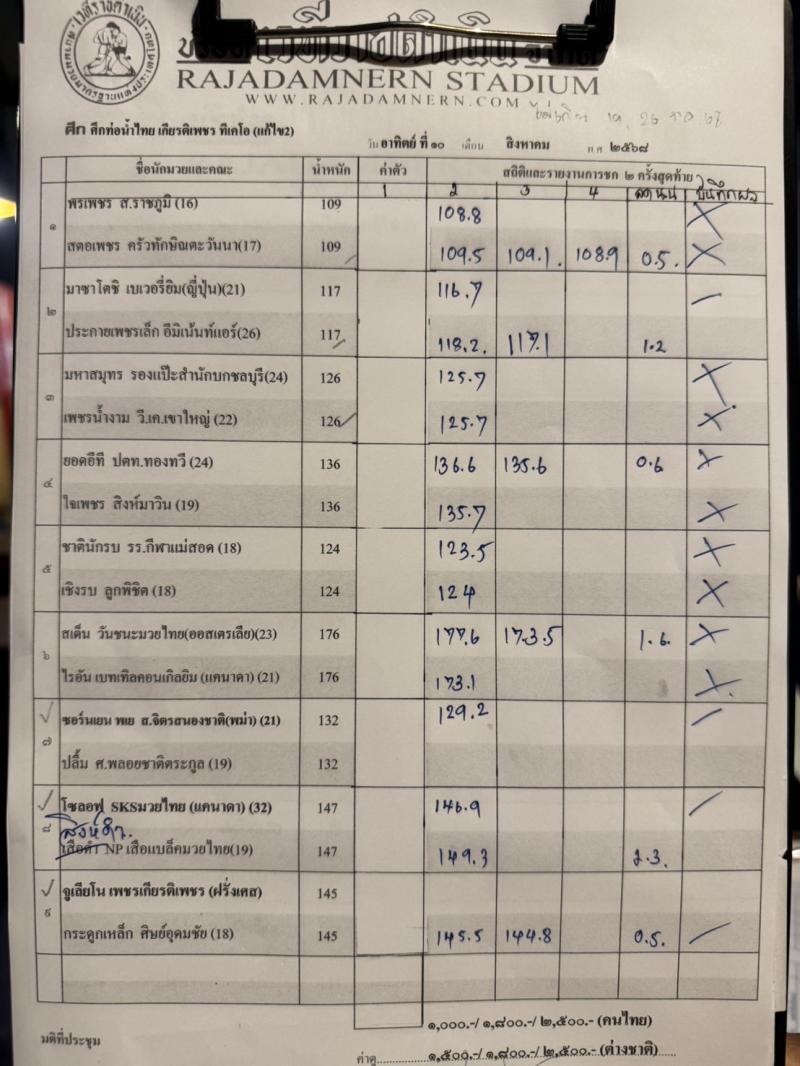 บริษัทเวทีราชดำเนิน จำกัด
RAJADAMNERN STADIUM
WWW.RAJADAMNERN.COM
ศึก ศึกท่อน้ำไทย เกียรติเพชร ทีเคโอ (แก้ไข2)
วันอาทิตย์ ที่ ๑๐ เดือน สิงหาคม พ.ศ. ๒๕๖๘
ชื่อนักมวยและคณะ น้ำหนัก ค่าตัว สถิติและรายงานการชก ๒ ครั้งสุดท้าย
1 2 3 4 ลด นน บันทึกผล
๑ พรเพชร ส.ราชภูมิ (16) 109 108.8 X
สตอเพชร ครัวทักษิณตะวันนา(17) 109 109.5 109.1. 108.9 0.5. X
๒ มาซาโตชิ เบเวอรี่ยิม(ญี่ปุ่น)(21) 117 116.7
ประกายเพชรเล็ก อีมิเน้นท์แอร์(26) 117 118.2. 117.1 1.2
๓ มหาสมุทร รองแป๊ะสำนักบกชลบุรี(24) 126 125.7 X
เพชรน้ำงาม วี.เค.เขาใหญ่ (22) 126 125.7 X
๔ ยอดอีที ปตท.ทองทวี (24) 136 136.6 135.6 0.6 X
ใจเพชร สิงห์มาวิน (19) 136 135.7 X
๕ ชาตินักรบ รร.กีฬาแม่สอด (18) 124 123.5 X
เชิงรบ ลูกพิชิต (18) 124 124 X
๖ สเต็น วันชนะมวยไทย(ออสเตรเลีย)(23) 176 177.6 173.5 1.6. X
ไรอัน เบทเทิลคอนเกิลยิม (แคนาดา) (21) 176 173.1 X
๗ ซอร์นเยน พเย ส.จิตรสนองชาติ(พม่า) (21) 132 129.2
ปลื้ม ศ.พลอยชาติตระกูล (19) 132
๘ โซลอฟ SKSมวยไทย (แคนาดา) (32) 147 146.9
สิงห์ดำ.
เสือดำ NP เสือแบล็คมวยไทย(19) 147 149.3 2.3.
๙ จูเลียโน เพชรเกียรติเพชร (ฝรั่งเศส) 145
กระดูกเหล็ก ศิษย์อุดมชัย (18) 145 145.5 144.8 0.5.
๑,๐๐๐.-/ ๑,๘๐๐.-/ ๒,๕๐๐.- (คนไทย)
มติที่ประชุม
ค่าดู................๑,๕๐๐.-/ ๑,๘๐๐.-/ ๒,๕๐๐.- (ต่างชาติ)......